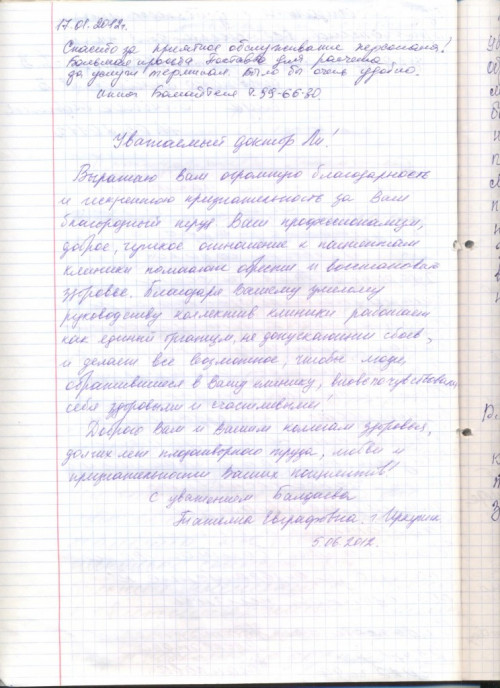 17.01.2012г.
Спасибо за приятное обслуживание персонала!
Большая просьба поставьте для расчета
за услуги терминал. Было бы очень удобно.
Анна т. 59-66-80
Уважаемый доктор Ли!
Выражаю Вам огромную благодарность
и искреннюю признательность за Ваш
благородный труд. Ваш профессионализм,
доброе, чуткое отношение к пациентам
клиники помогают обрести и восстановить
здоровье. Благодаря Вашему умелому
руководству коллектив клиники работает
как единый организм, не допускающий сбоев,
и делает все возможное, чтобы люди,
обратившиеся в Вашу клинику, вновь почувствовали
себя здоровыми и счастливыми!
Доброго Вам и Вашим коллегам здоровья,
долгих лет плодотворного труда, любви и
признательности Ваших пациентов!
С уважением Балдаева
Татьяна Евграфовна. г. Иркутск
5.06.2012.